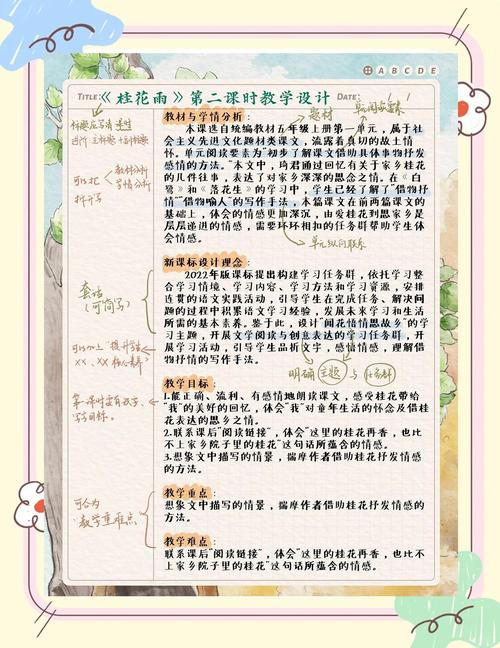 A B C D E
TITLE:《桂花雨》第二课时教学设计 DATE: / /
单元阅读要素
题材
教材与学情分析:
本课选自统编教材五年级上册第一单元,属于社
会主义先进文化题材类课文,流露着真切的故土情
怀。单元阅读要素为“初步了解课文借助具体事物抒发
感情的方法。”本文中,琦君通过回忆有关于家乡桂花
的几件往事,表达了对家乡深深的思念之情。在《白
鹭》和《落花生》的学习中,学生已经了解了“借物抒
情”“借物喻人”的写作手法,本篇课文在前两篇课文的
基础上,体会的情感更加深沉,由爱桂花到思家乡是
层层递进的情感,需要环环相扣的任务群帮助学生体
会情感。
可以把
教材分析
学情分析
拆开写
单元纵向联系
新课标设计理念:
2022年版课标提出构建学习任务群,依托学习整
合学习情境、学习内容、学习方法和学习资源,安排
连贯的语文实践活动,引导学生在完成任务、解决问
题的过程中积累语文学习经验,发展未来学习和生活
所需的基本素养。鉴于此,设计“闻花惜情思故乡”的学
习主题,开展文学阅读与创意表达的学习任务群,开
展学习活动,引导学生品析文字,感悟情感,理解借
物抒情的写作手法。
套话
(可简写)
明确 主题 与 任务群
教学目标:
1.能正确、流利、有感情地朗读课文,感受桂花带给
“我”的美好的回忆,体会“我”对童年生活的怀念及借桂
花表达的思乡之情。
2.联系课后“阅读链接”,体会“这里的桂花再香,也比
不上家乡院子里的桂花”这句话所蕴含的情感。
3.想象文中描写的情景,揣摩作者借助桂花抒发情感
的方法。
教学重点:
想象文中描写的情景,揣摩作者借助桂花抒发情感的
方法。
可合为
教学重难点
教学难点:
联系课后“阅读链接”,体会“这里的桂花再香,也比不
上家乡院子里的桂花”这句话所蕴含的情感。